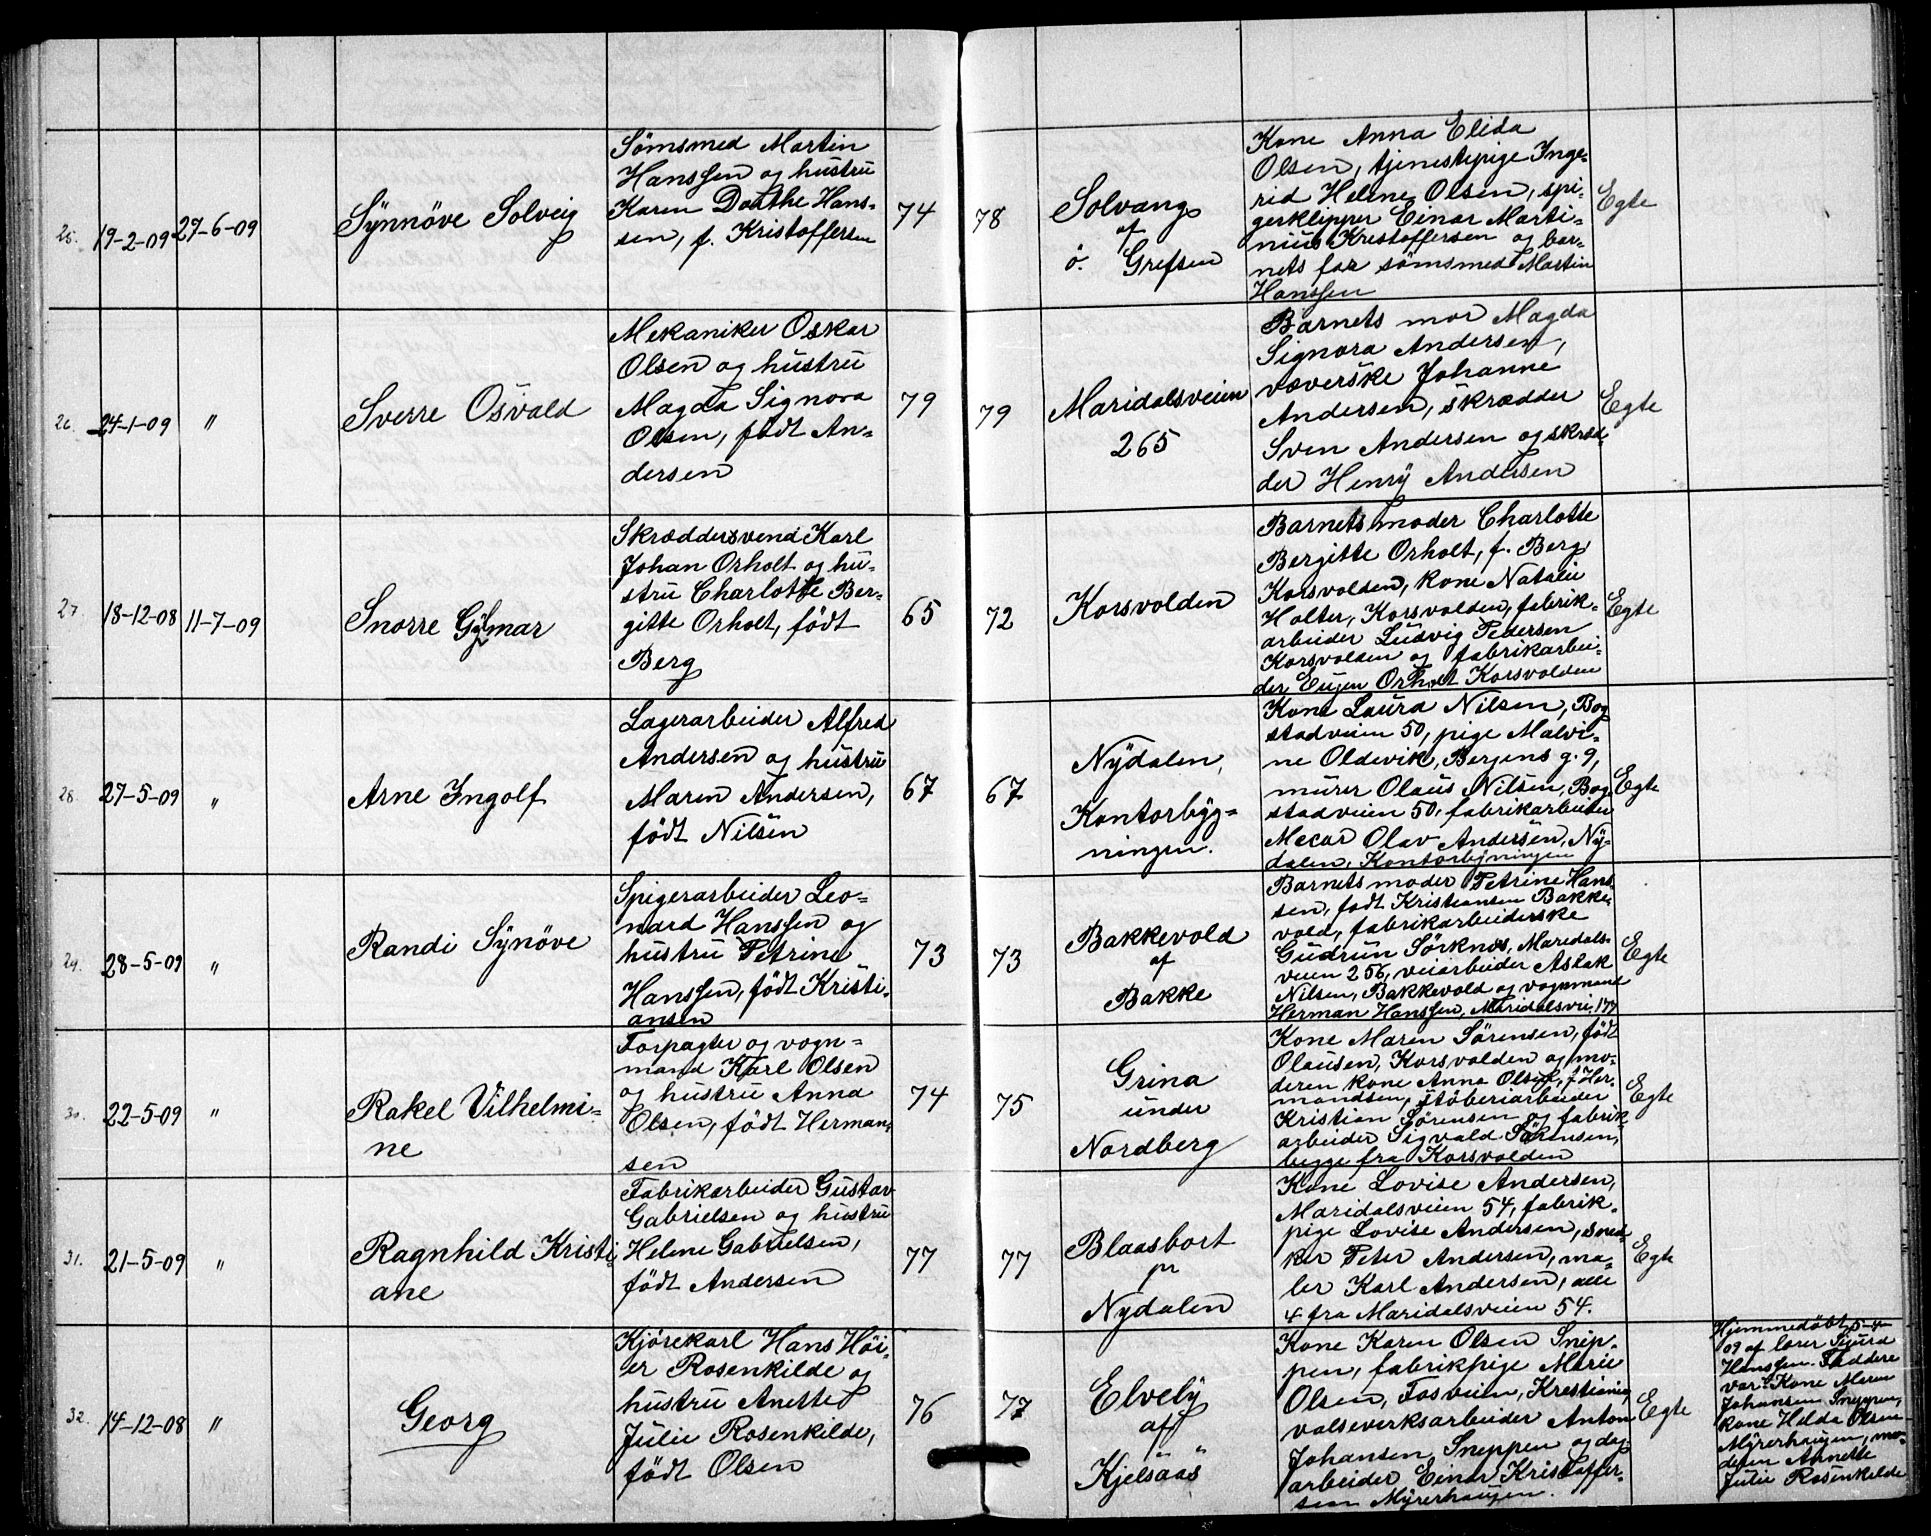 25.
19-2-09
27-6-09
Synnöve Solveig
Sömsmed Martin
Hanssen og hustru
Karen Dorthe Hans-
sen, f. Kristoffersen
74
78
Solvang
af
ö. Grefsen
Kone Anna Elida
Olsen, tjenestepige Inge-
rid Helene Olsen, spi-
gerklipper Einar Marti-
nius Kristoffersen og bar-
nets far sömsmed Martin
Hanssen
Egte
26.
24-1-09
"
Sverre Osvald
Mekaniker Oskar
Olsen og hustru
Magda Signora
Olsen, födt An-
dersen
79
79
Maridalsveien
265
Barnets mor Magda
Signora Andersen,
væverske Johanne
Andersen, skrædder
Sven Andersen og skræd-
der Henry Andersen
Egte
27.
18-12-08
11-7-09
Snorre Gylmar
Skræddersvend Karl
Johan Orholt og hu-
stru Charlotte Ber-
gitte Orholt, födt
Berg
65
72
Korsvolden
Barnets moder Charlotte
Bergitte Orholt, f. Berg
Korsvolden, kone Natalie
Holter, Korsvolden, fabrik-
arbeider Ludvig Pedersen
Korsvolden og fabrikarbei-
der Eugen Orholt Korsvolden
Egte
28.
27-5-09
"
Arne Ingolf
Lagerarbeider Alfred
Andersen og hustru
Maren Andersen,
födt Nilsen
67
67
Nydalen,
Kontorbyg-
ningen.
Kone Laura Nilsen, Bog
stadveien 50, pige Malvi-
ne Oldevik, Bergens g. 9,
murer Olaus Nilsen, Bog
stadveien 50, fabrikarbeider
Mecar Olav Andersen, Ny-
dalen, Kontorbygningen
Egte
29.
28-5-09
"
Randi Synöve
Spigerarbeider Leo-
nard Hanssen og
hustru Petrine
Hanssen, födt Kristi-
ansen
73
73
Bakkevold
af
Bakke
Barnets moder Petrine Hans
sen, födt Kristiansen Bakke-
vold, fabrikarbeiderske
Gudrun Sörknes, Maridals-
veien 256, veiarbeider Aslak
Nilsen, Bakkevold og vognmand
Herman Hanssen, Maridalsvei. 177
Egte
30.
22-5-09
"
Rakel Vilhelmi-
ne
Forpagter og vogn-
mand Karl Olsen
og hustru Anna
Olsen, födt Herman-
sen
74
75
Grina
under
Nordberg
Kone Maren Sörensen, födt
Olausen, Korsvolden og mo-
deren kone Anna Olsen, f. Her-
mandsen, stöberiarbeider
Kristian Sörensen og fabrik-
arbeider Sigvald Sörensen,
begge fra Korsvolden
Egte
31.
21-5-09
"
Ragnhild Kristi-
ane
Fabrikarbeider Gustav
Gabrielsen og hustru
Helene Gabrielsen,
födt Andersen
77
77
Blaasbort
pr
Nydalen
Kone Lovise Andersen,
Maridalsveien 54, fabrik-
pige Lovise Andersen, sned-
ker Peter Andersen, ma-
ler Karl Andersen, alle
4 fra Maridalsveien 54.
Egte
32.
14-12-08
"
Georg
Kjörekarl Hans Höi-
er Rosenkilde og
hustru Anette
Julie Rosenkilde,
födt Olsen
76
77
Elvely
af
Kjelsaas
Kone Karen Olsen Snip-
pen, fabrikpige Marie
Olsen, Fosveien,
valseverksarbeider Anton
Johansen Sneppen og dag
arbeider Einar Kristoffer-
sen Myrerhaugen.
Egte
Hjemmedöbt 5-4-
09 af lærer Sigurd
Hanssen. Faddere
var: Kone Maren
Johansen Sneppen,
kone Hilda Olsen
Myrerhaugen, mo-
deren Annette
Julie Rosenkilde